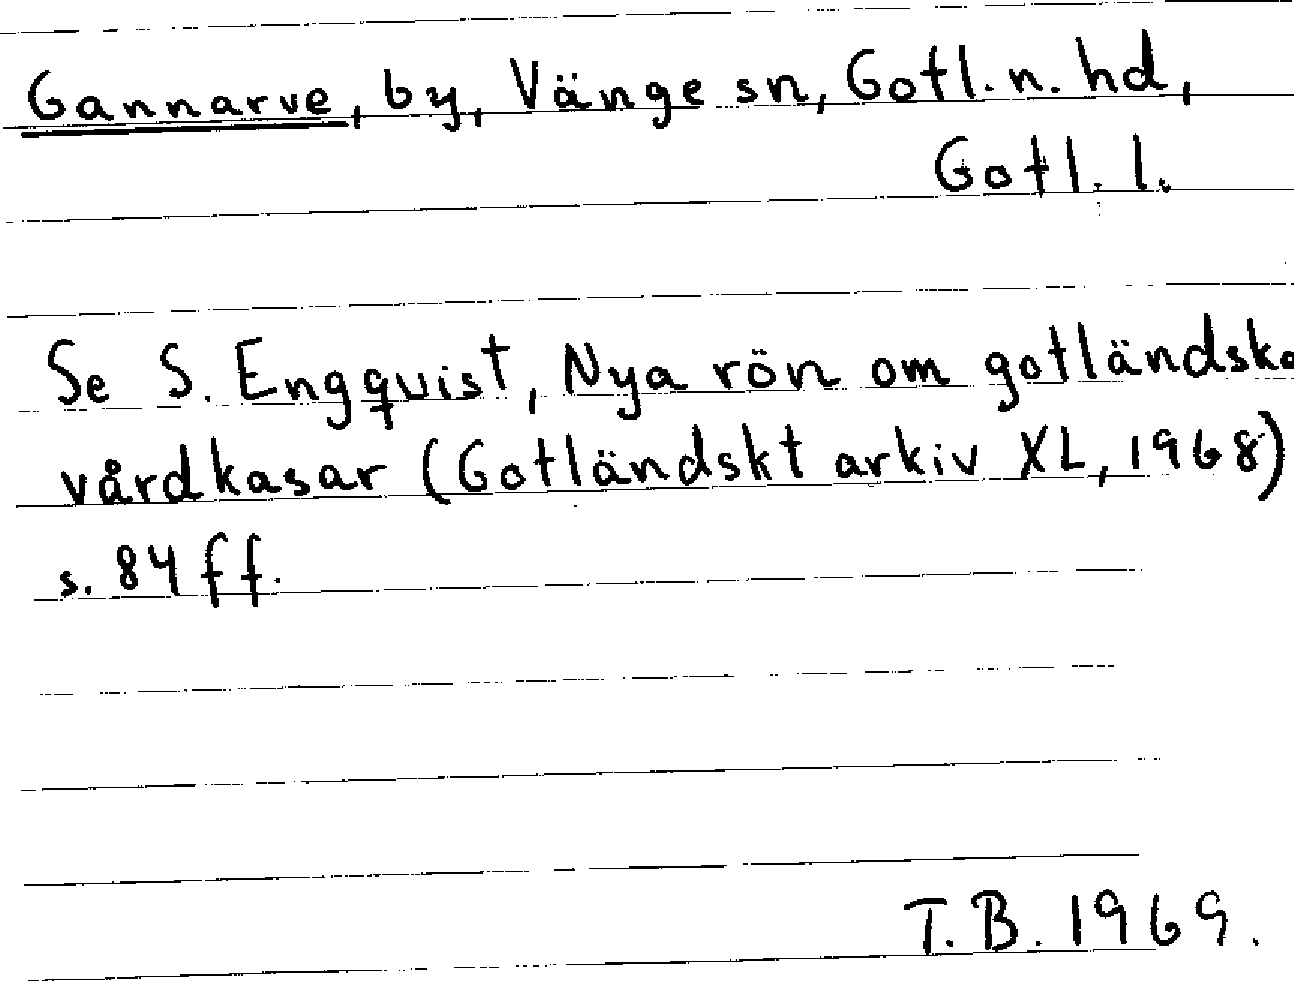 Gannarve, by, Vänge sn, Gotl. n. hd,
Gotl. l.
Se S. Engquist, Nya rön om gotländska
vårdkasar (Gotländskt arkiv XL, 1968)
s. 84 ff.
T. B. 1969.